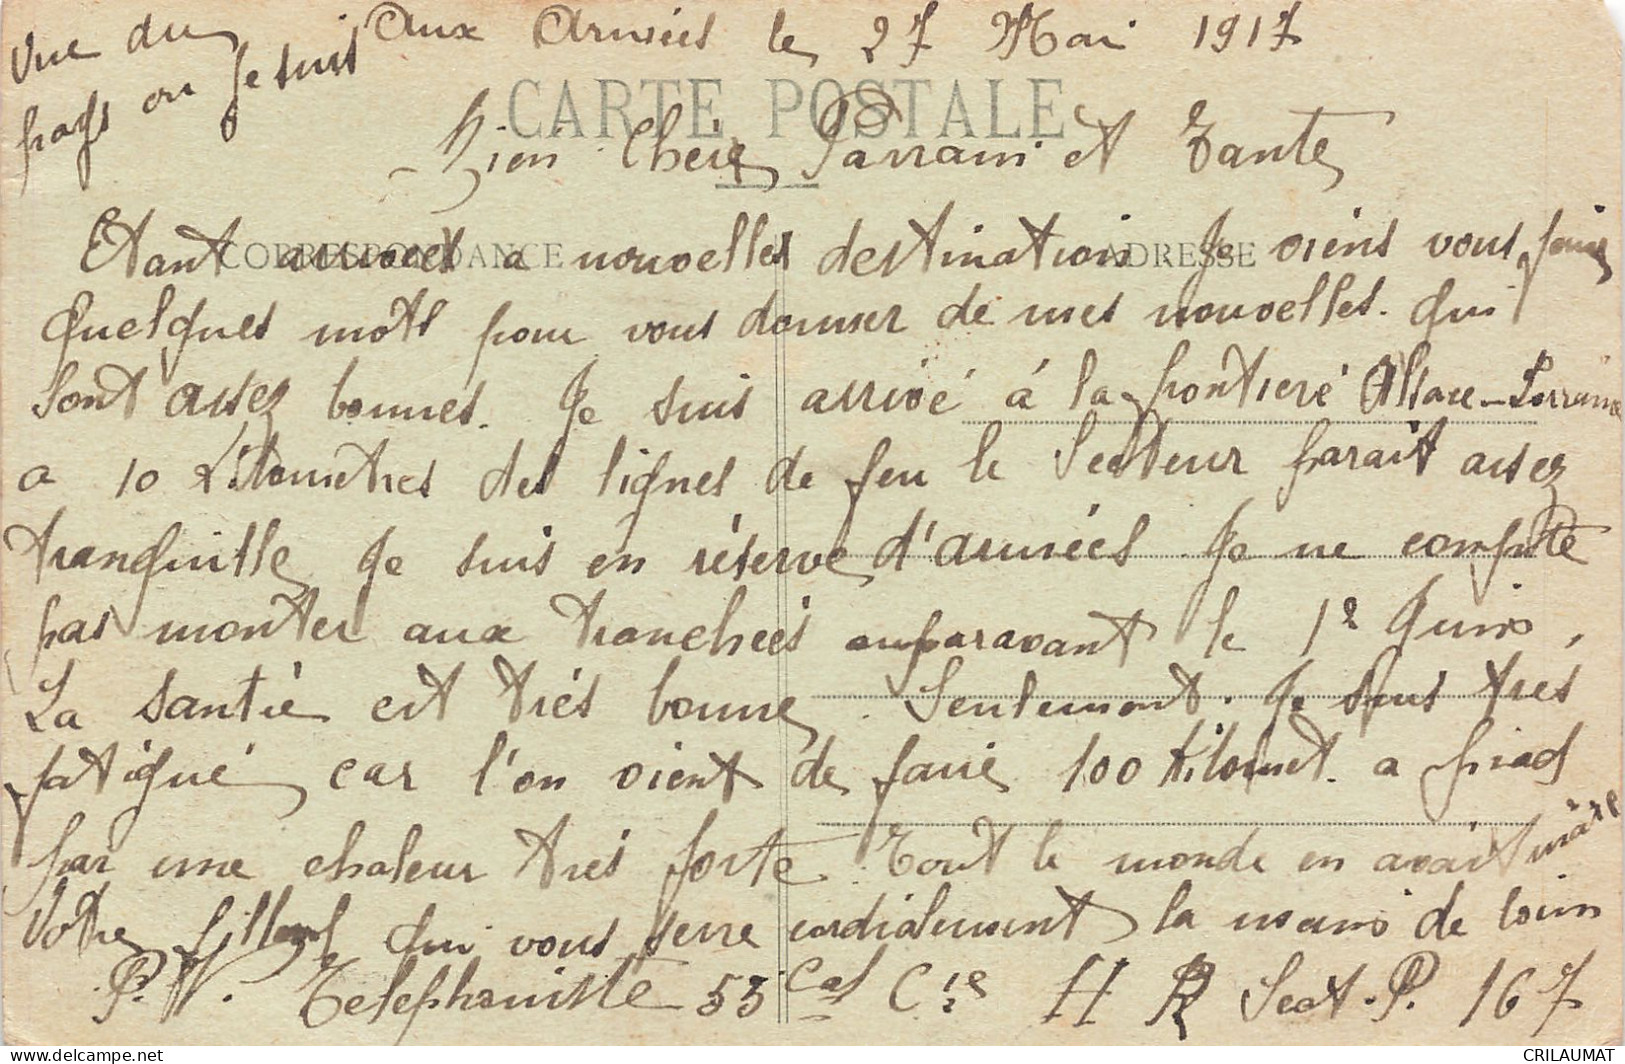 Vue du
pays ou Je suis
Aux Armées le 27 Mai 1917
CARTE POSTALE
Bien Chère Parrain et Tante
CORRESPONDANCE ADRESSE
Etant arrivé a nouvelles destination Je viens vous faire
quelques mots pour vous donner de mes nouvelles. qui
sont assez bonnes. Je suis arrivé à la frontière Alsace-Lorraine
a 10 Kilomètres des lignes de feu le Secteur parait assez
tranquille Je suis en réserve d'armées Je ne compte
pas monter aux tranchées auparavant le 1er Juin,
La santé est très bonne. Seulement. Je suis très
fatigué, car l'on vient de faire 100 Kilomet. a pied
par une chaleur très forte Tout le monde en avait marre
Votre filleul qui vous serre cordialement la main de loin
P.V. Telephoniste 55 Cie H R Sect. P. 167
CRILAUMAT